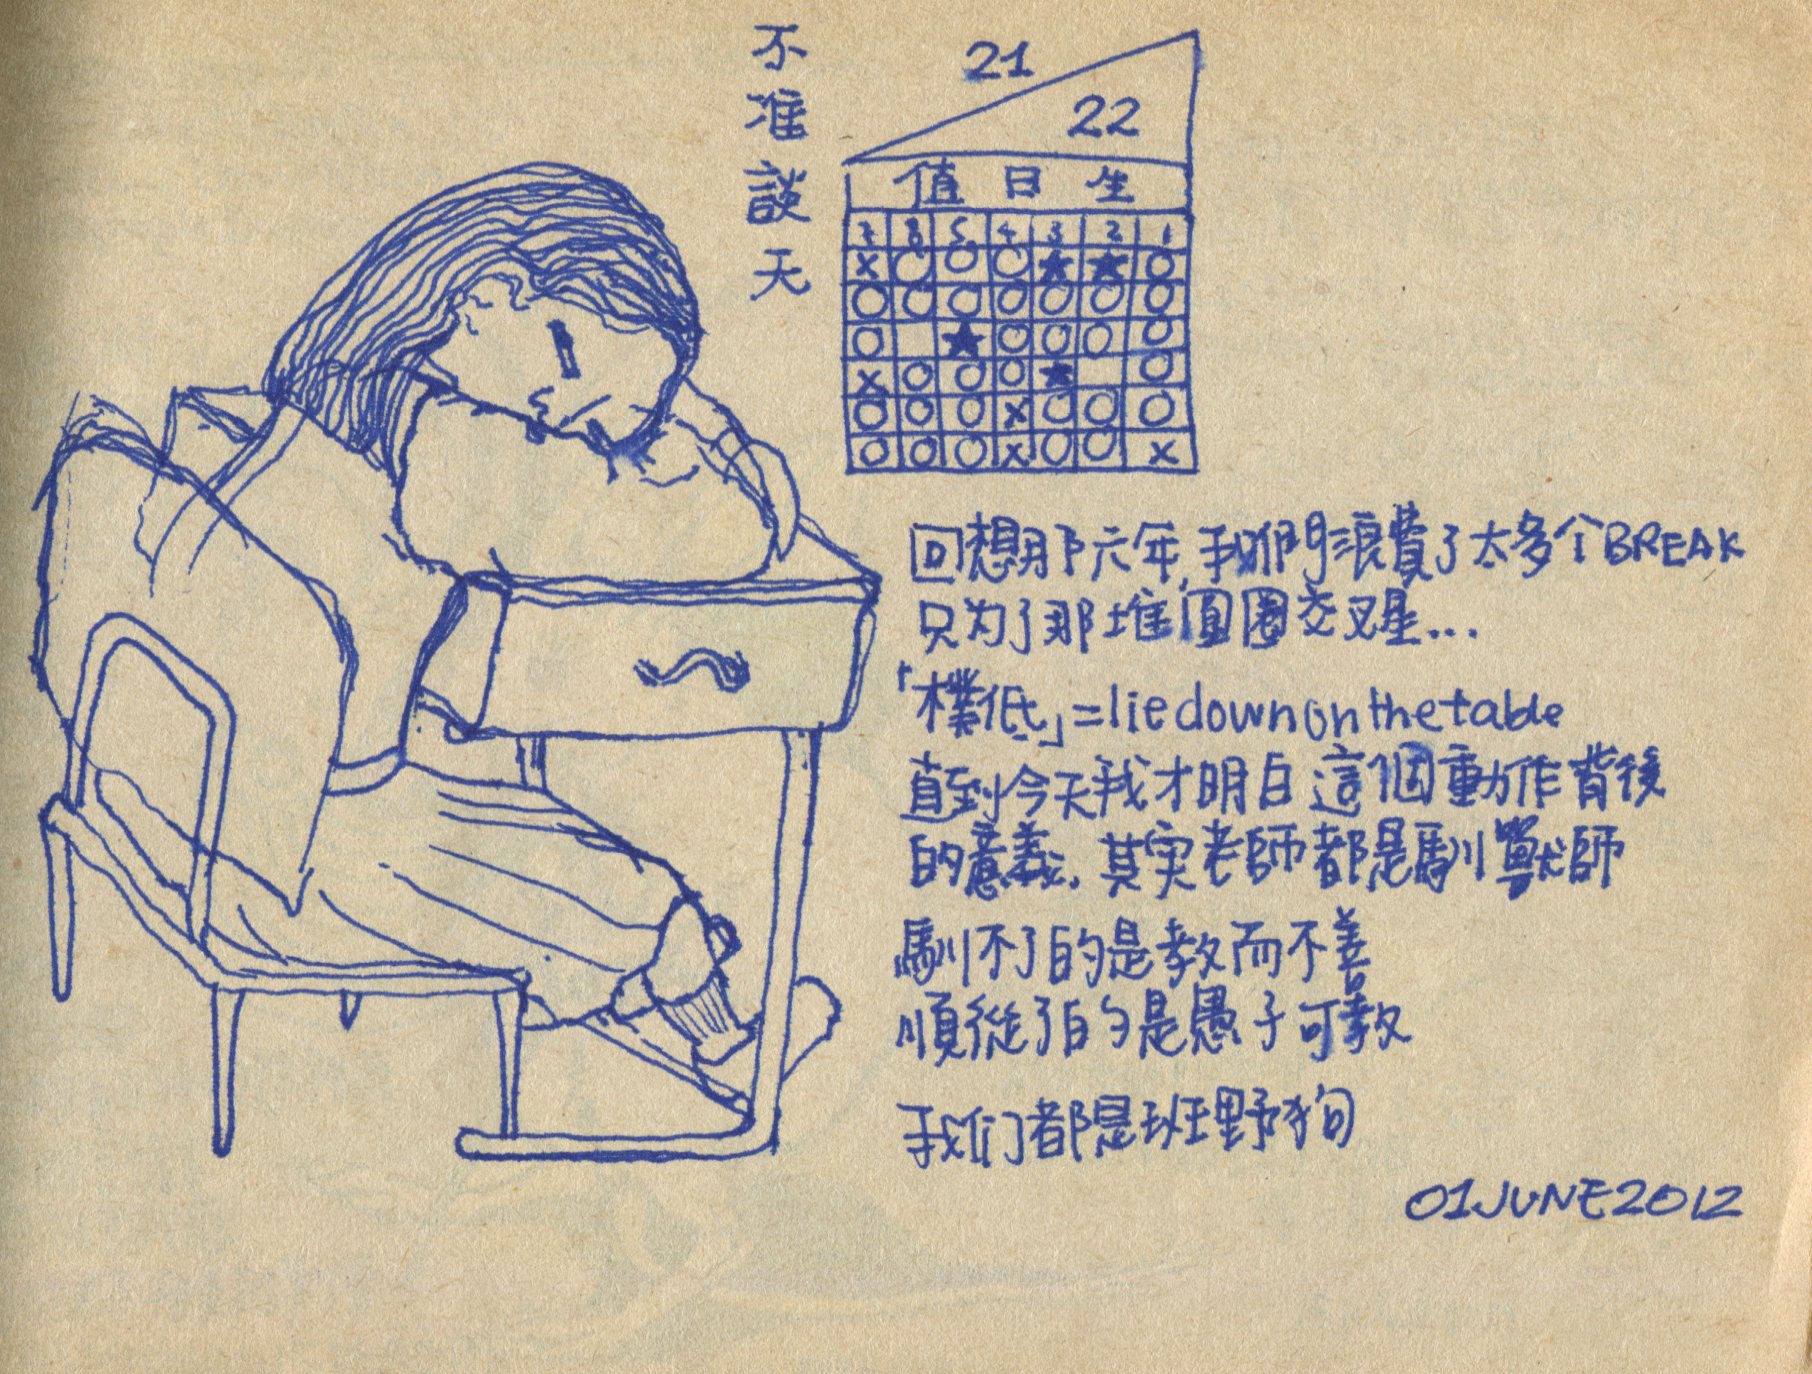 不准談天
21
22
值日生
7 6 5 4 3 2 1
x ○ ○ ○ ★ ★ ○
○ ○ ○ ○ ○ ○ ○
○ ★ ○ ○ ○ ○
x ○ ○ ○ ★ ○
○ ○ ○ x ○ ○ ○
○ ○ ○ x ○ ○ x
回想那六年,我們浪費了太多个BREAK
只为了那堆圓圈交叉星...
「樸低」=lie down on the table
直到今天我才明白這個動作背後
的意義.其实老師都是馴獸師
馴不了的是教而不善
順從了的是愚子可教
我们都是班野狗
01JUNE2012